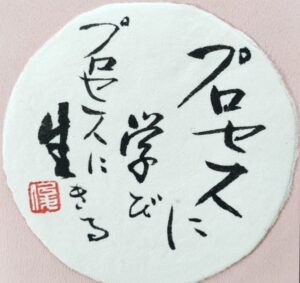 プロセスに
学び
プロセスに
生きる